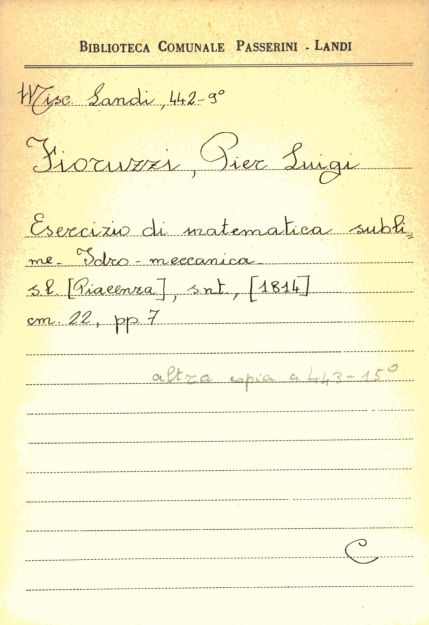 BIBLIOTECA COMUNALE PASSERINI - LANDI
Misc. Landi, 442-9°
Fioruzzi, Pier Luigi
Esercizio di matematica subli=
me. Idro-meccanica
s.l. [Piacenza], s.n.t., [1814]
cm. 22, pp. 7
altra copia a 443-15°
C